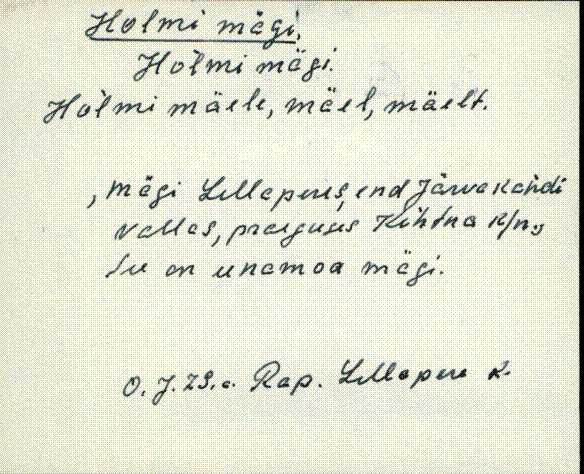 Holmi mägi,
Hòlmi mägi.
Hòlmi mäele, mäel, mäelt.
, mägi Lellapere, end Järvakandi
vallas, praeguses Kehtna k/n.,
on unamoa mägi.
O. J. 29. a. Rap. Lellapere k.